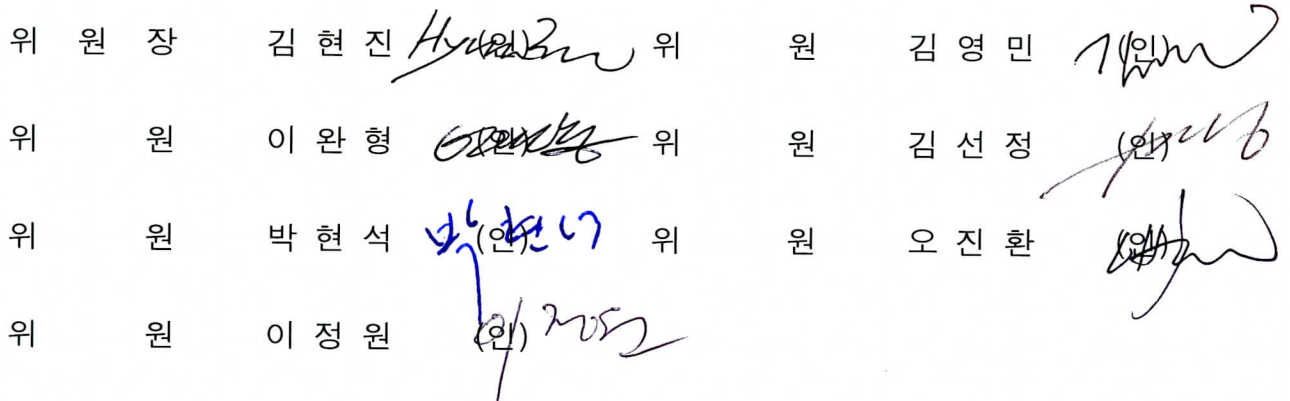 위 원 장 김 현 진 (인) 위 원 김 영 민 (인)
위 원 이 완 형 (인) 위 원 김 선 정 (인)
위 원 박 현 석 (인) 위 원 오 진 환 (인)
위 원 이 정 원 (인)